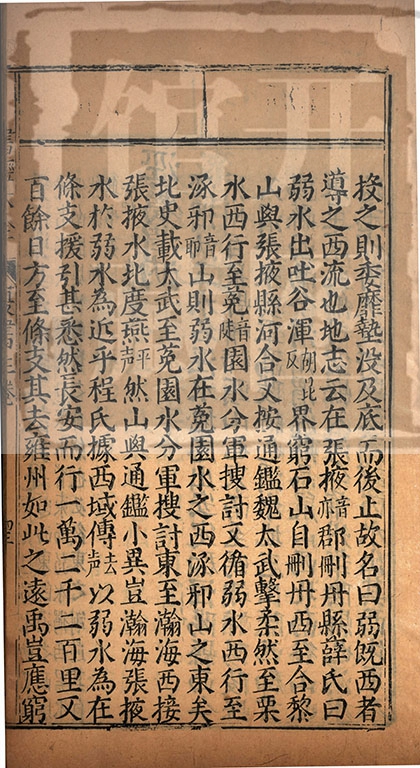 投之則委靡墊没及底而後止故名曰弱既西者
導之西流也地志云在張掖音亦郡刪丹縣薛氏曰
弱水出吐谷渾胡昆反界窮石山自刪丹西至合黎
山與張掖縣河合又按通鑑魏太武擊柔然至栗
水西行至菟音陡園水分軍搜討又循弱水西行至
涿邪音耶山則弱水在菟園水之西涿邪山之東矣
北史載太武至菟園水分軍搜討東至瀚海西接
張掖水北度燕平声然山與通鑑小異豈瀚海張掖
水於弱水為近乎程氏據西域傳去声以弱水為在
條支援引甚悉然長安西行一萬二千二百里又
百餘日方至條支其去雍州如此之遠禹豈應窮